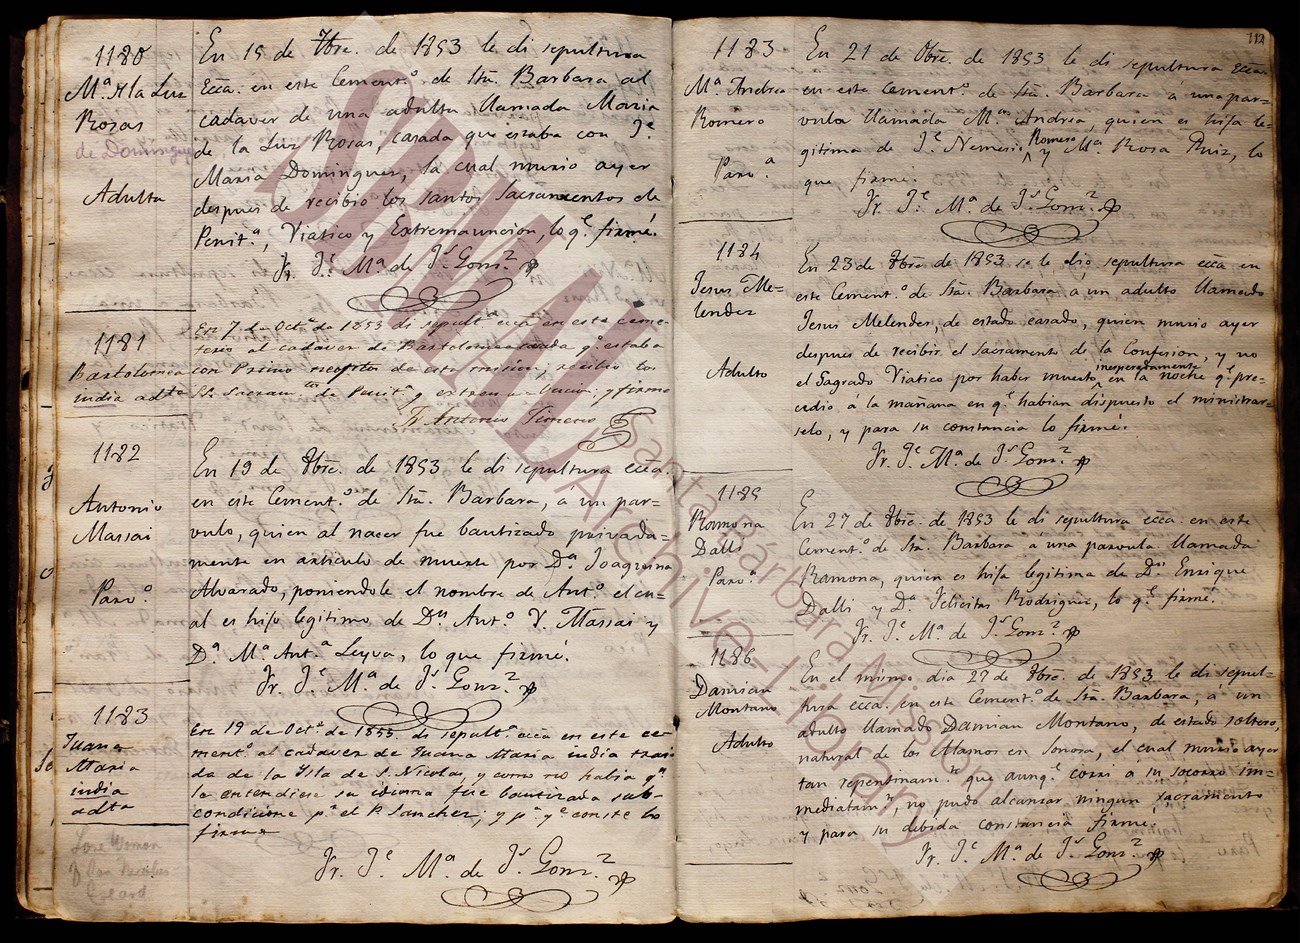 1180
Mª. de la Luz
Rosas
de Dominguez
Adulta
En 15 de 8bre. de 1853 le di sepultura
Ecca. en este Cement.º de Sta. Barbara al
cadaver de una adulta llamada Maria
de la Luz Rosas, casada que estaba con Je.
Maria Dominguez, la cual murio ayer
despues de recibio los santos Sacramentos de
Penit.ª, Viatico y Extremauncion, lo q.e firmé.
Fr. Je. Mª. de Js. Gonz.z
1181
Bartolomea
india adta
En 7 de Oct.e de 1853 di sepult.ª ecca en este cime-
terio al cadaver de Bartolomea casada q.e estaba
con Primo neofito de esta mision; recibio los
SS. Sacram.tos de Penit.ª y extremauncion; y firme
Fr. Antonio Jimeno
1182
Antonio
Massai
Parv.º
En 19 de 8bre. de 1853 le di sepultura ecca.
en este Cement.º de Sta. Barbara, a un par-
vulo, quien al nacer fue bautizado privada-
mente en articulo de muerte por Dª. Joaquina
Alvarado, poniendole el nombre de Ant.º el cu-
al es hijo legitimo de Dn. Ant.º V. Massai y
Dª. Mª. Ant.ª Leyva, lo que firmé.
Fr. Je. Mª. de Js. Gonz.z
1183
Juana
Maria
india
adta
Lone Woman
of San Nicolas
Island
En 19 de Oct.e de 1853 di sepult.ª ecca en este ce-
ment.º al cadaver de Juana Maria india trai-
da de la Isla de S. Nicolas, y como no habia q.n
la entendiese su idioma fue bautizada sub-
condicione p.r el P. Sanchez; y p.ª q.e conste lo
firme
Fr. Je. Mª. de Js. Gonz.z
112
1183
Mª. Andrea
Romero
Parv.ª
En 21 de 8bre. de 1853 le di sepultura Ecca.
en este Cement.º de Sta. Barbara a una par-
vula llamada Mª. Andrea, quien es hija le-
gitima de Je. Nemesio Romero y Mª. Rosa Ruiz, lo
que firmé.
Fr. Je. Mª. de Js. Gonz.z
1184
Jesus Me-
lendez
Adulto
En 23 de 8bre. de 1853 se le dio sepultura ecca en
este Cement.º de Sta. Barbara á un adulto llamado
Jesus Melendes, de estado casado, quien murio ayer
despues de recibir el Sacramento de la Confesion, y no
el Sagrado Viatico por haber muerto inesperadamente en la noche q.e pre-
cedio á la mañana en q.e habian dispuesto el ministrar-
selo, y para su constancia lo firmé.
Fr. Je. Mª. de Js. Gonz.z
1185
Ramona
Dalli
Parv.ª
En 27 de 8bre. de 1853 le di sepultura ecca. en este
Cement.º de Sta. Barbara á una parvula llamada
Ramona, quien es hija legitima de Dn. Enrique
Dalli y Dª. Felicitas Rodriguez, lo q.e firmé.
Fr. Je. Mª. de Js. Gonz.z
1186
Damian
Montano
Adulto
En el mismo dia 27 de 8bre. de 1853 le di sepul-
tura ecca. en este Cement.º de Sta. Barbara, á un
adulto llamado Damian Montano, de estado soltero,
natural de los Alamos en Sonora, el cual murio ayer
tan repentinam.te que aunq.e corri á su socorro im-
mediatam.te, no pudo alcanzar ningun sacramento
y para su debida constancia firmé.
Fr. Je. Mª. de Js. Gonz.z
SBMAL
Santa Bárbara Mission
Archive-Library